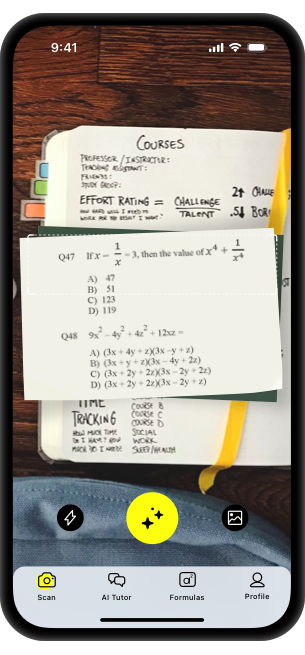 9:41
COURSES
PROFESSOR / INSTRUCTOR:
TEACHING ASSISTANT:
FRIENDS:
STUDY GROUP:
EFFORT RATING = CHALLENGE
TALENT
HOW HARD WILL I NEED TO
WORK FOR THE RESULT I WANT?
2↑ CHALLE
.5↓ BOR
Q47 If x − 1/x = 3, then the value of x⁴ + 1/x⁴
A) 47
B) 51
C) 123
D) 119
Q48 9x² − 4y² + 4z² + 12xz =
A) (3x + 4y + z)(3x − y + z)
B) (3x + y + z)(3x − 4y + 2z)
C) (3x + 2y + 2z)(3x − 2y + 2z)
D) (3x + 2y + z)(3x − 2y + z)
TIME
TRACKING
HOW MUCH TIME
DO I HAVE? HOW
MUCH DO I NEED?
COURSE B
COURSE C
COURSE D
SOCIAL
WORK
SLEEP/HEALTH
Scan
AI Tutor
Formulas
Profile